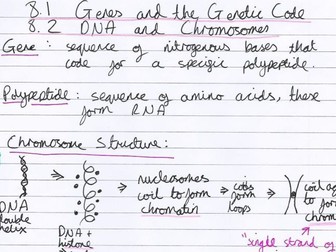 8.1 Genes and the Genetic Code
8.2 DNA and Chromosomes
Gene: sequence of nitrogenous bases that
code for a specific polypeptide.
Polypeptide: sequence of amino acids, these
form RNA
Chromosome structure:
DNA
double
helix
DNA +
histone
nucleosomes
coil to form
chromatin
coils
form
loops
coil
to form
"single strand of